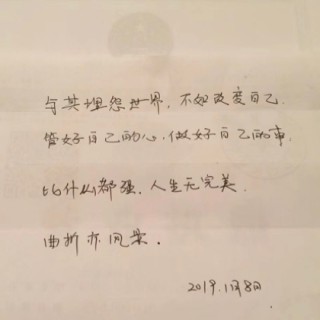 与其埋怨世界，不如改变自己.
管好自己的心.做好自己的事.
比什么都强.人生无完美.
曲折亦风景.
2019.1月8日